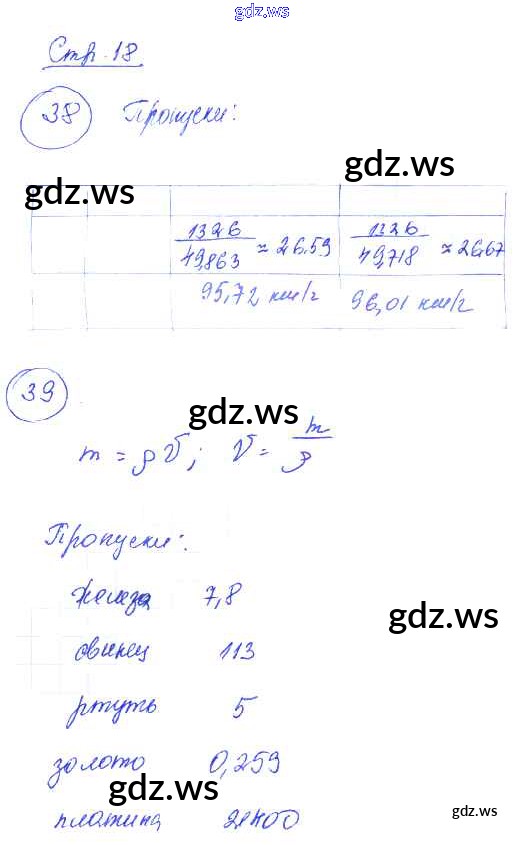 gdz.ws
Стр. 18
38 Пропуски:
gdz.ws
gdz.ws
1326/49,863 ≈ 26.59 1326/49,718 ≈ 26,67
95,72 км/г 96,01 км/г
39
gdz.ws
m = ρV; V = m/ρ
Пропуски:
железа 7,8
gdz.ws
свинец 113
ртуть 5
золото 0,259
gdz.ws
платина 21400
gdz.ws